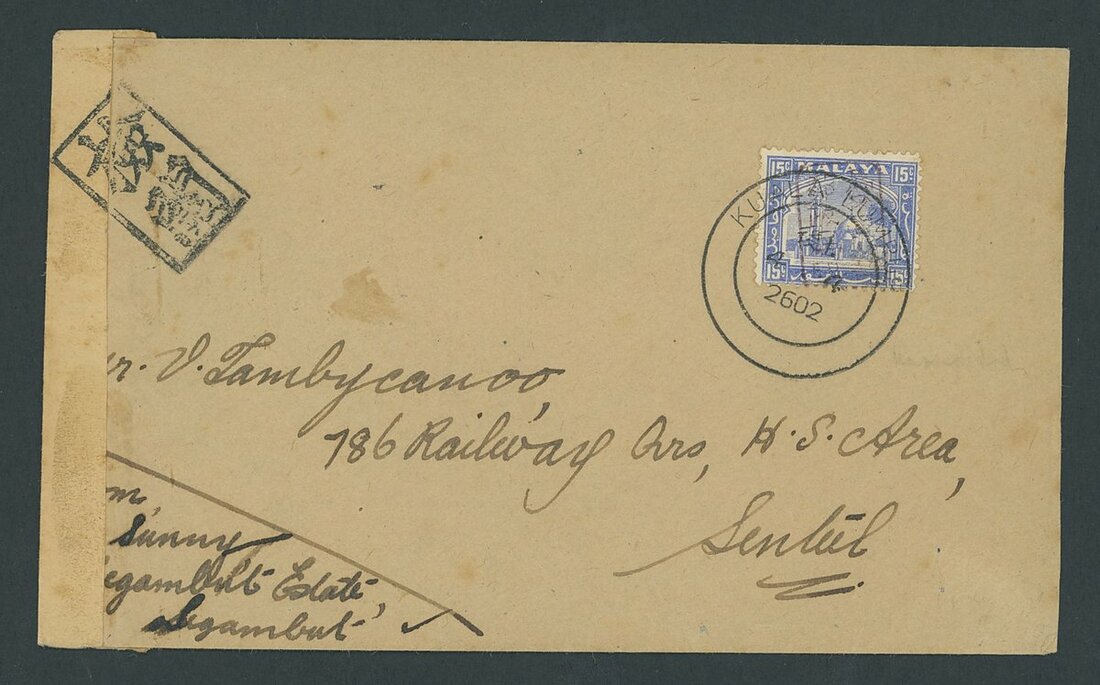 MALAYA
15c 15c
15c 15c
KUALA
2602
r. V. Tambycanoo,
786 Railway Qrs, H. S. Area,
Sentul
om,
Sunny,
egambut Estate,
Segambut